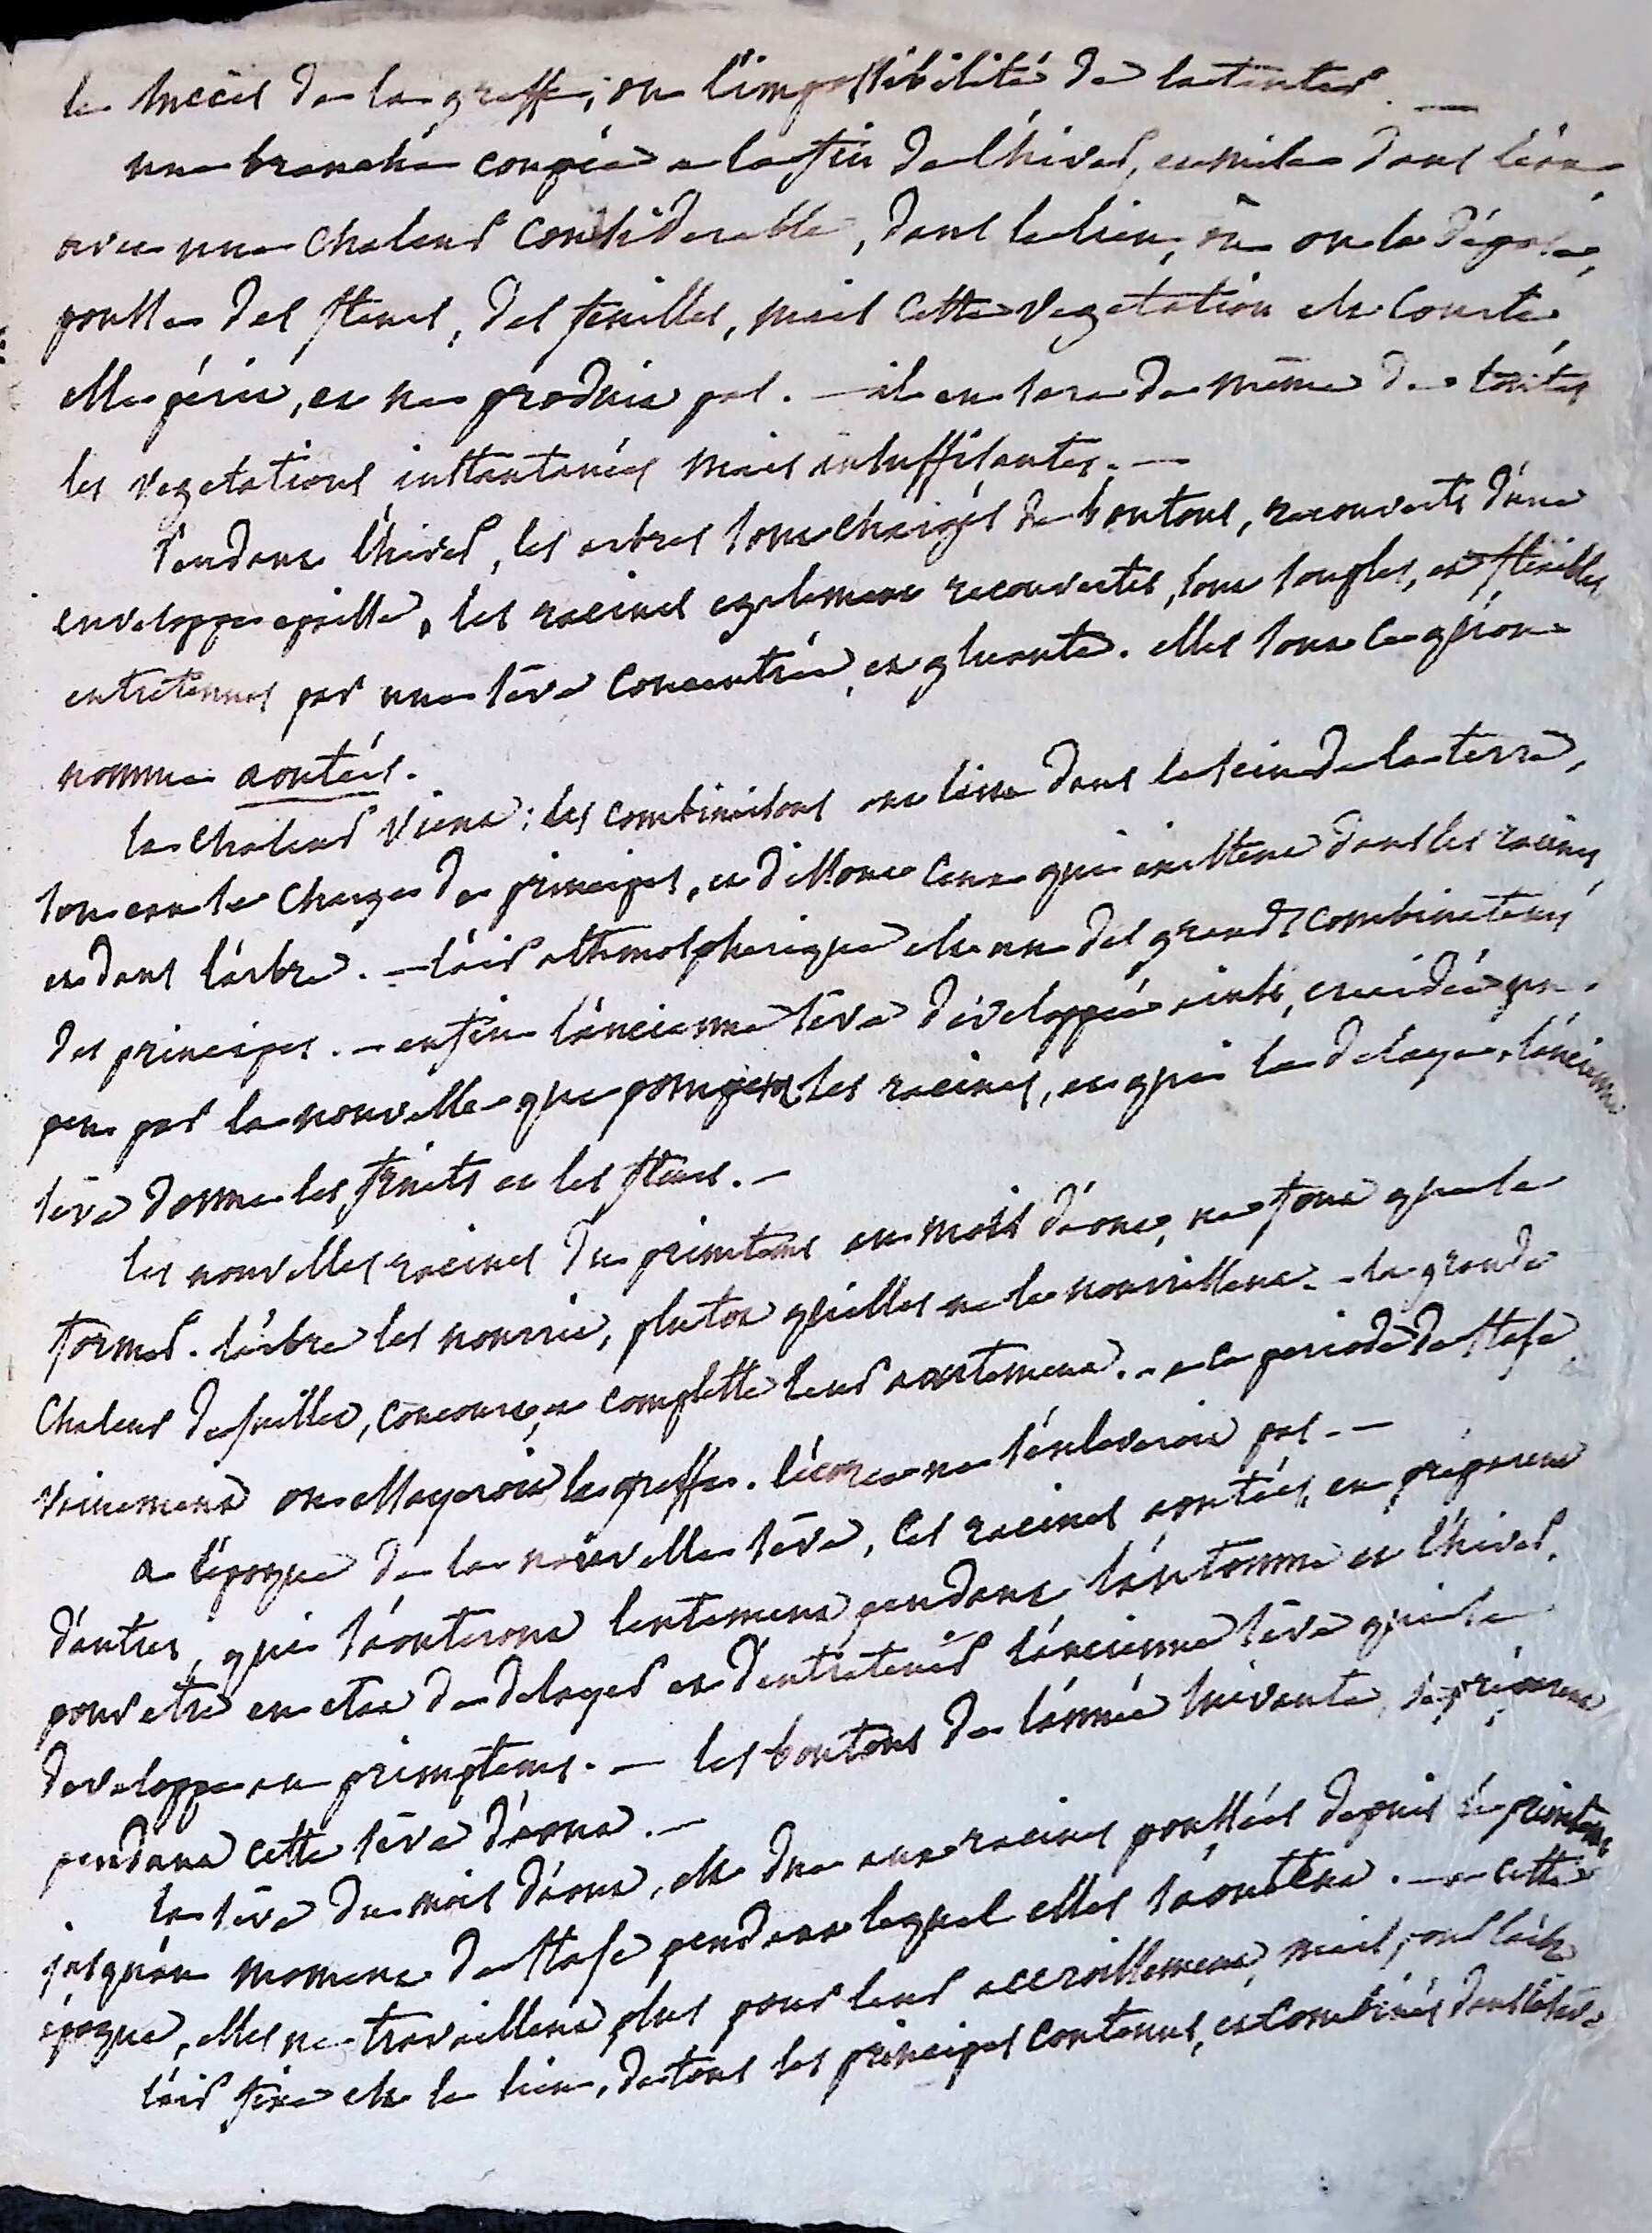 le succès de la greffe, ou l'impossibilité de la tenter. —
une branche coupée a la fin de l'hiver, et mise dans l'eau
avec une chaleur considerable, dans le lieu, où on la dépose,
pousse des fleurs, des feuilles, mais cette vegetation est courte
elle périt, et ne produit pas. — il en sera de même de toutes
les vegetations instantanées mais insuffisantes. —
Pendant l'hiver, les arbres sont chargés de boutons, recouverts d'une
enveloppe epaisse, les racines egalement recouvertes, sont souples, et flexibles
entretenues par une sêve concentrée, et gluante. elles sont ce qu'on
nomme aoutées.
la chaleur vient; les combinaisons ont lieu dans le sein de la terre,
son eau se charge de principes, et dissout ceux qui existent dans les racines,
et dans l'arbre. — l'air athmospherique est un des grands combinateurs
des principes. — enfin l'ancienne sêve développée ainsi, est aidée peu a
peu par la nouvelle que pompent les racines, et qui la delaye. l'ancienne
sêve donne les fruits et les fleurs. —
les nouvelles racines du printems au mois d'aout, ne font que se
former. l'arbre les nourrit, plutot qu'elles ne le nourrissent. — la grande
chaleur de juillet, concourt, et complette leur aoutement. — a ce periode de stase
vainement on essayeroit la greffe. l'écorce ne s'enleveroit pas. —
a l'époque de la nouvelle sêve, les racines aoutées, en préparent
d'autres, qui s'aouteront lentement pendant l'automne et l'hiver.
pour etre en etat de delayer et d'entretenir l'ancienne sêve qui se
developpe au primptems. — les boutons de l'année suivante, se préparent
pendant cette sêve d'aout. —
la sêve du mois d'aout, est due aux racines poussées depuis le printems
jusqu'au moment de stase pendant lequel elles s'aoutent. — a cette
époque, elles ne travaillent plus pour leur accroissement, mais pour l'arbre
l'air fixe est le lien, de tous les principes contenus, et combinés dans la sêve